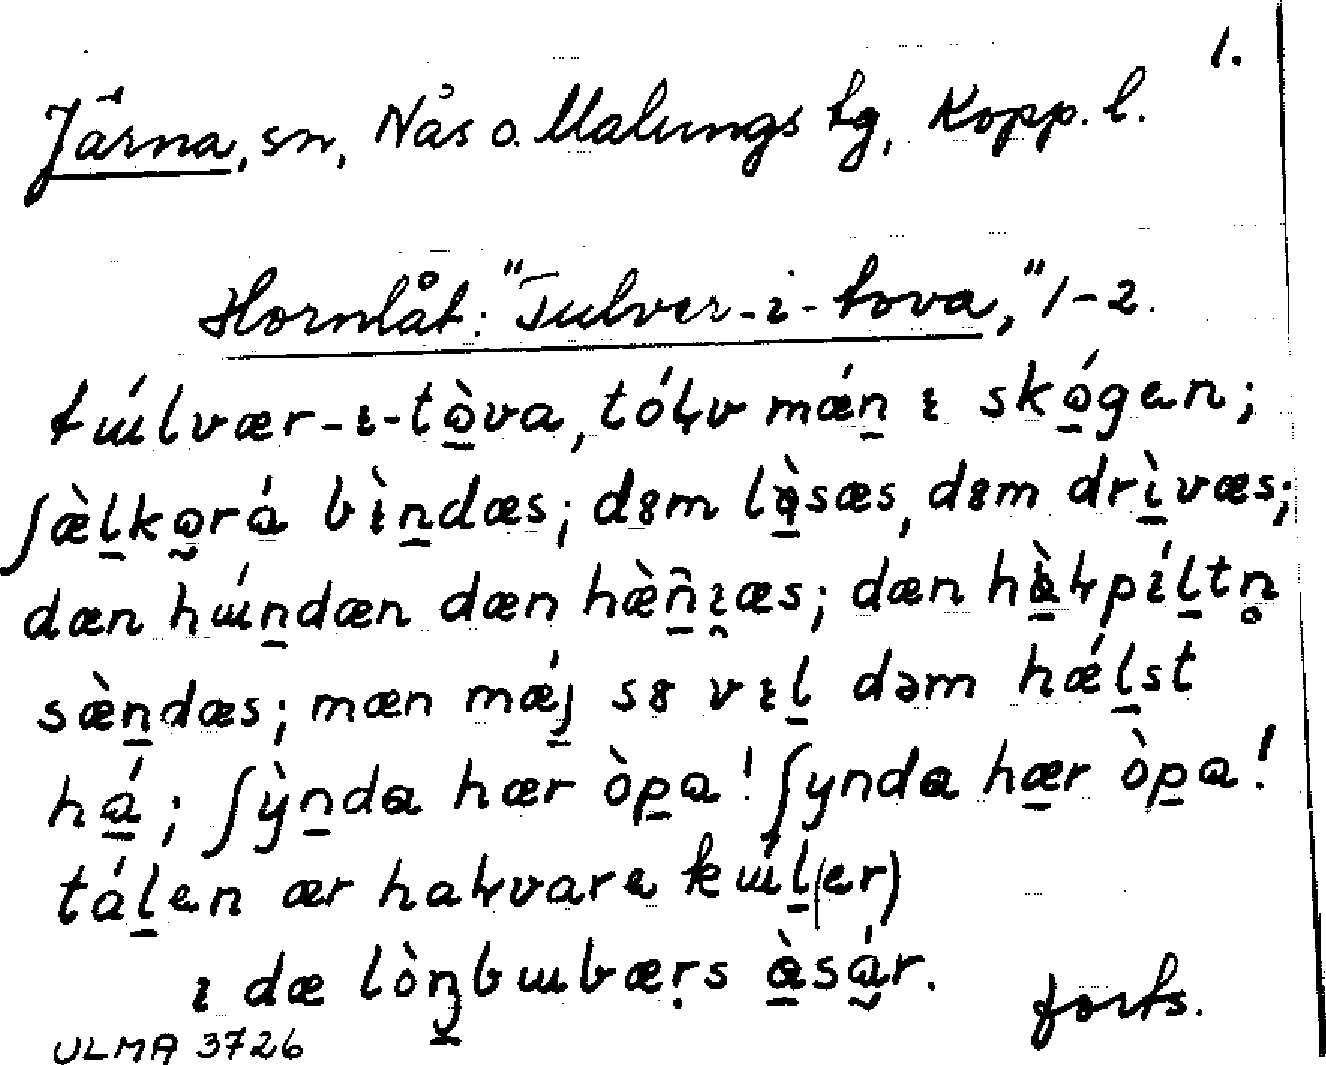 1.
Järna, sn, Nås o. Malungs tg, Kopp. l.
Hornlåt: "Tulver-i-tova," 1-2.
tɯ́lvær-ɩ-tò̱va, tóɫv mǽṉ ɩ skó̱gen;
ʃæ̀ḻko̱rá bɩ̀ṉdæs; dɞm lɑ̱̀sæs, dɞm drɩ̱̀væs;
dæn hɯ́ṉdæn dæn hæ̀ṉɩ̯æs; dæn hɑ̱̀ɫpɩ́ḻtn̥
sæ̀ṉdæs; mæn mǽj̱ sɞ vɩḻ dəm hǽḻst
hɑ̱́; ʃỳṉda hær òp̱a! ʃynda hæ̱r òp̱a!
táḻen ær haɫvare kɯ́ḻ(er)
ɩ dæ lòŋ̱bɯbæṛs ɑ̱̀sɑ́r.
forts.
ULMA 3726